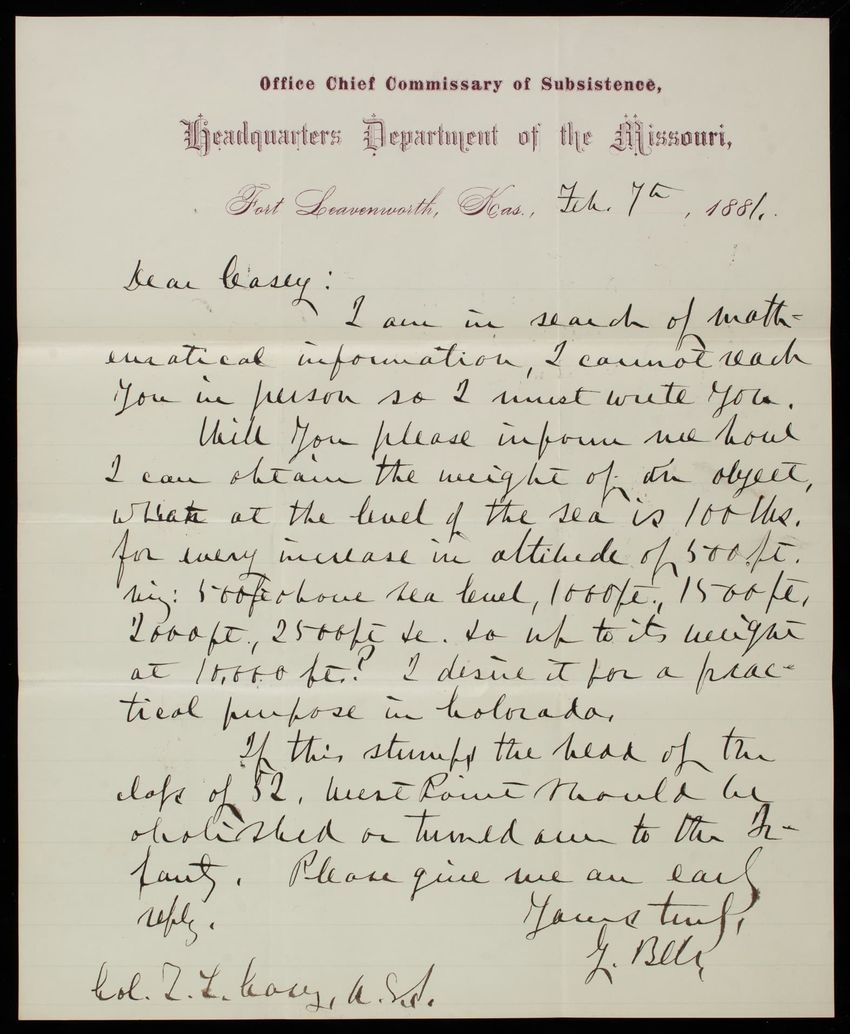 Office Chief Commissary of Subsistence,
Headquarters Department of the Missouri,
Fort Leavenworth, Kas., Feb. 7th, 1881.
Dear Casey:
I am in search of math-
ematical information, I cannot reach
you in person so I must write you.
Will you please inform me how
I can obtain the weight of an object,
which at the level of the sea is 100 lbs.
for every increase in altitude of 500 ft.
viz: 500ft above sea level, 1000ft., 1500ft,
2000ft., 2500ft &c. so up to its weight
at 10,000 ft.? I desire it for a prac-
tical purpose in Colorado.
If this stumps the head of the
class of 52, West Point should be
abolished or turned over to the In-
fantry. Please give me an early
reply.
Yours truly,
G. Bell,
Col. T. L. Casey,